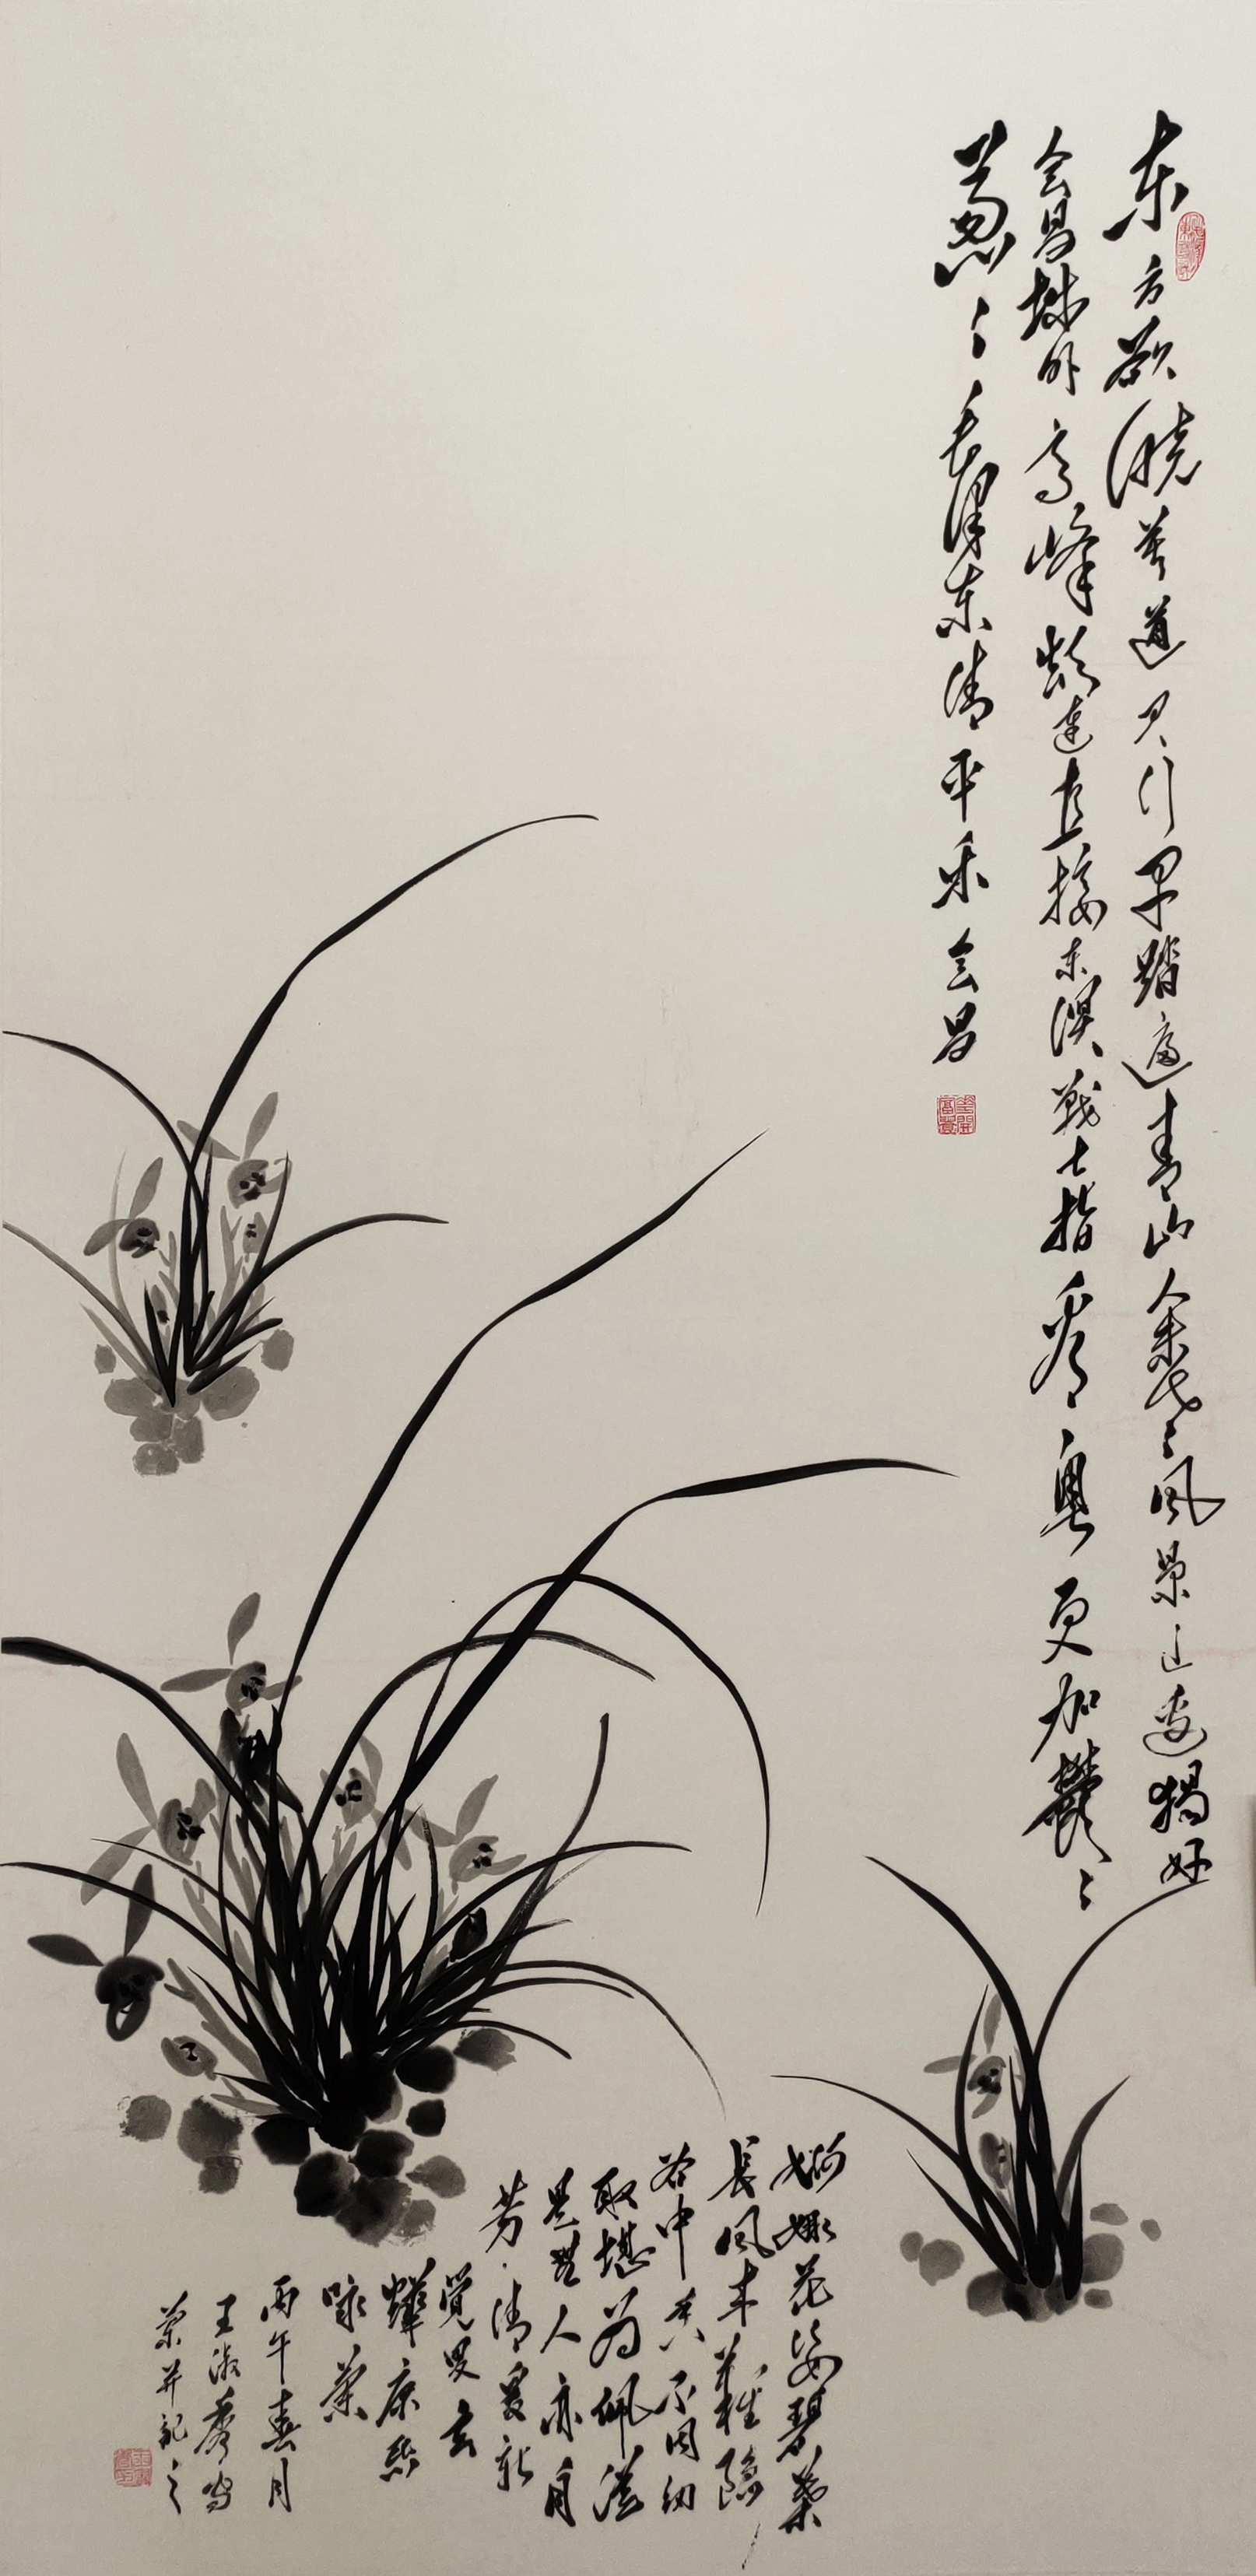 东方欲晓莫道君行早踏遍青山人未老风景这边独好
会昌城外高峰颠连直接东溟战士指看南粤更加鬱々
葱々毛泽东清平乐会昌
婀娜花姿碧葉
長风来難隐
谷中香不因纫
取堪为佩纵
是無人亦自
芳·清爱新
觉罗玄
燁康熙
咏蘭
丙午春月
王淑写
蘭并记之